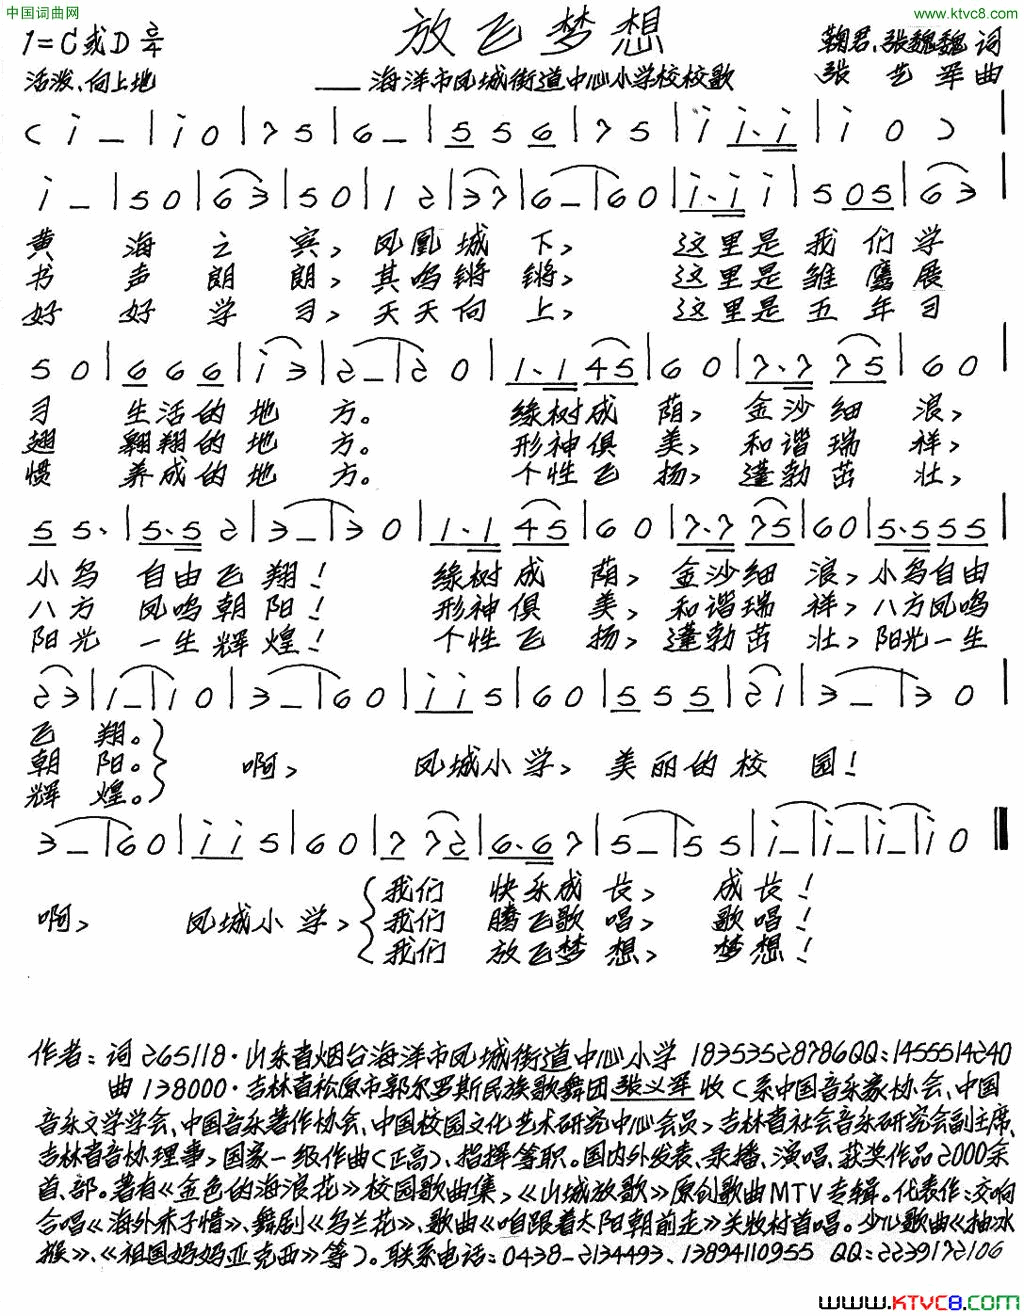 中国词曲网
www.ktvc8.com
放飞梦想
1=C或D 2/4
鞠君、张魏魏 词
活泼、向上地
——海洋市凤城街道中心小学校校歌
张艺军 曲
( i – | i 0 | 7 5 | 6 – | 5 5 6 | 7 5 | i i. i | i 0 ) |
i – | 5 0 | 6 3 | 5 0 | 1 2 | 3 7 | 6 – | 6 0 | i. i i | 5 0 5 | 6 3 |
黄 海 之 宾, 凤 凰 城 下, 这 里 是 我 们 学
书 声 朗 朗, 其 鸣 锵 锵, 这 里 是 雏 鹰 展
好 好 学 习, 天 天 向 上, 这 里 是 五 年 习
5 0 | 6 6 6 | i 3 | 2 – | 2 0 | 1. 1 4 5 | 6 0 | 7. 7 7 5 | 6 0 |
习 生活的 地 方。 缘树成 荫, 金沙细 浪,
翅 翱翔的 地 方。 形神俱 美, 和谐瑞 祥,
惯 养成的 地 方。 个性飞 扬, 蓬勃茁 壮,
5 5. | 5. 5 2 | 3 – | 3 0 | 1. 1 4 5 | 6 0 | 7. 7 7 5 | 6 0 | 5. 5 5 5 |
小鸟 自由飞 翔! 缘树成 荫, 金沙细 浪, 小鸟自由
八方 凤鸣朝 阳! 形神俱 美, 和谐瑞 祥, 八方凤鸣
阳光 一生辉 煌! 个性飞 扬, 蓬勃茁 壮, 阳光一生
2 3 | 1 – | 1 0 | 3 – | 6 0 | i i 5 | 6 0 | 5 5 5 | 2 1 | 3 – | 3 0 |
飞 翔。
朝 阳。 啊, 凤城小 学, 美丽的校 园!
辉 煌。
3 – | 6 0 | i i 5 | 6 0 | 7 7 2 | 6. 6 7 | 5 – | 5 5 | i – | i – | i – | i 0 ‖
我们 快乐成 长, 成 长!
啊, 凤城小 学, 我们 腾飞歌 唱, 歌 唱!
我们 放飞梦 想, 梦 想!
作者:词265118·山东省烟台海洋市凤城街道中心小学 18353528786QQ:1455514240
曲138000·吉林省松原市郭尔罗斯民族歌舞团张义军 收(系中国音乐家协会、中国
音乐文学学会、中国音乐著作协会、中国校园文化艺术研究中心会员,吉林省社会音乐研究会副主席、
吉林省音协理事,国家一级作曲(正高)、指挥等职。国内外发表、录播、演唱、获奖作品2000余
首、部。著有《金色的海浪花》校园歌曲集,《山城放歌》原创歌曲MTV专辑。代表作:交响
合唱《海外赤子情》、舞剧《乌兰花》、歌曲《咱跟着太阳朝前走》关牧村首唱。少儿歌曲《抽冰
猴》、《祖国妈妈亚克西》等)。联系电话:0438-2134493、13894110955 QQ:2239172106
www.KTVC8.com